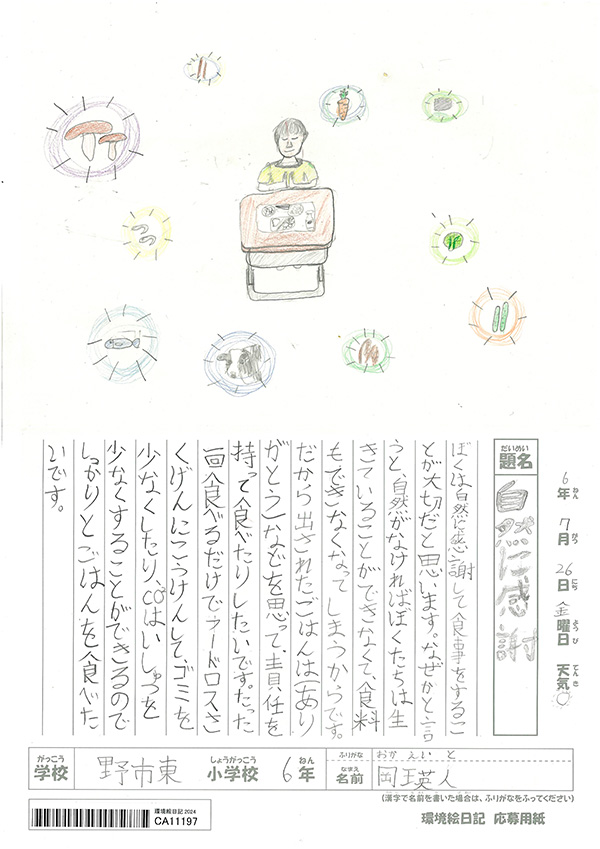 6年 7月 26日 金曜日 天気○
ねん がつ にち ようび てんき
だいめい
題名
自然に感謝
ぼくは自然に感謝して食事をするこ
とが大切だと思います。なぜかと言
うと、自然がなければぼくたちは生
きていることができなくて、食料
もできなくなってしまうからです。
だから出されたごはんは(あり
がとう)などを思って、責任を
持って食べたりしたいです。たった
一回食べるだけでフードロスさ
くげんにこうけんしてゴミを
少なくしたり、CO2はいしゅつを
少なくすることができるので
しっかりとごはんを食べた
いです。
がっこう
学校
野市東
しょうがっこう
小学校
6年
ねん
ふりがな
おか えいと
なまえ
名前
岡 瑛人
(漢字で名前を書いた場合は、ふりがなをふってください)
環境絵日記 2024
CA11197
環境絵日記 応募用紙